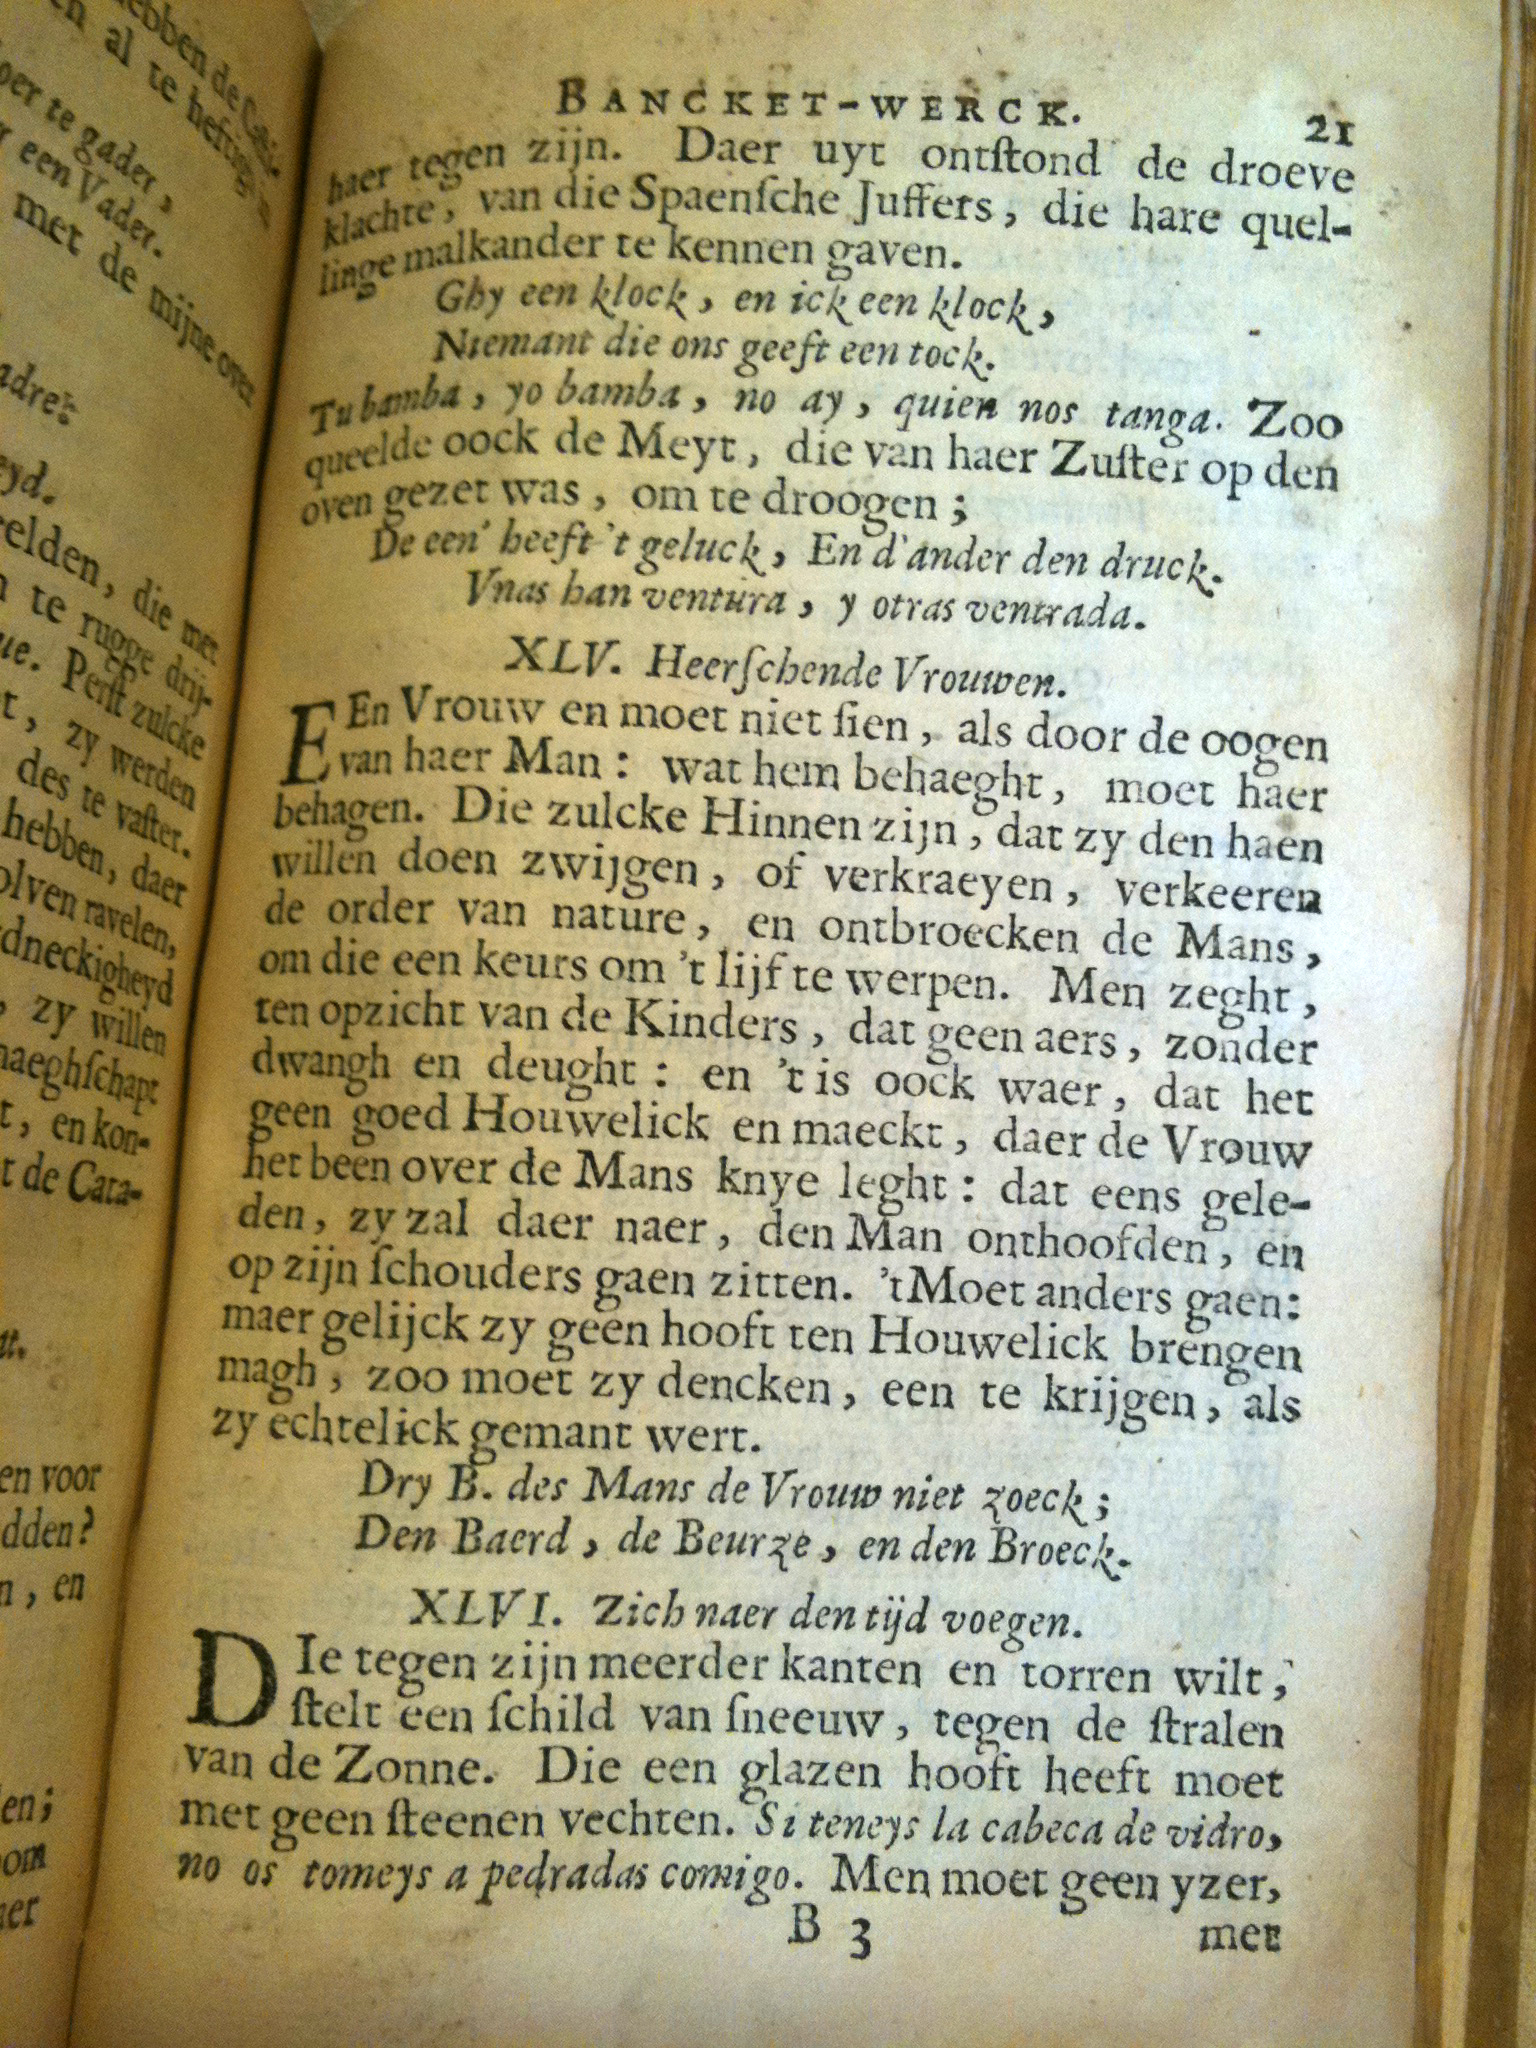 hebben de
en al te heftig
oer te gader,
een Vader.
met de mijne over
adre?
eyd.
relden, die met
te rugge drij-
ue. Perst zulcke
t, zy werden
des te vaster.
hebben, daer
olven ravelen,
rdneckigheyd
, zy willen
naeghſchapt
t, en kon-
t de Cata-
en voor
dden?
n, en
en;
oom
ner
BANCKET-WERCK. 21
haer tegen zijn. Daer uyt ontſtond de droeve
klachte, van die Spaenſche Juffers, die hare quel-
linge malkander te kennen gaven.
Ghy een klock, en ick een klock,
Niemant die ons geeft een tock.
Tu bamba, yo bamba, no ay, quien nos tanga. Zoo
queelde oock de Meyt, die van haer Zuſter op den
oven gezet was, om te droogen;
De een' heeft 't geluck, En d'ander den druck.
Vnas han ventura, y otras ventrada.
XLV. Heerſchende Vrouwen.
EEn Vrouw en moet niet ſien, als door de oogen
van haer Man: wat hem behaeght, moet haer
behagen. Die zulcke Hinnen zijn, dat zy den haen
willen doen zwijgen, of verkraeyen, verkeeren
de order van nature, en ontbroecken de Mans,
om die een keurs om 't lijf te werpen. Men zeght,
ten opzicht van de Kinders, dat geen aers, zonder
dwangh en deught: en 't is oock waer, dat het
geen goed Houwelick en maeckt, daer de Vrouw
het been over de Mans knye leght: dat eens gele-
den, zy zal daer naer, den Man onthoofden, en
op zijn ſchouders gaen zitten. 't Moet anders gaen:
maer gelijck zy geen hooft ten Houwelick brengen
magh, zoo moet zy dencken, een te krijgen, als
zy echtelick gemant wert.
Dry B. des Mans de Vrouw niet zoeck;
Den Baerd, de Beurze, en den Broeck.
XLVI. Zich naer den tijd voegen.
DIe tegen zijn meerder kanten en torren wilt,
ſtelt een ſchild van ſneeuw, tegen de ſtralen
van de Zonne. Die een glazen hooft heeft moet
met geen ſteenen vechten. Si teneys la cabeca de vidro,
no os tomeys a pedradas comigo. Men moet geen yzer,
B 3 met